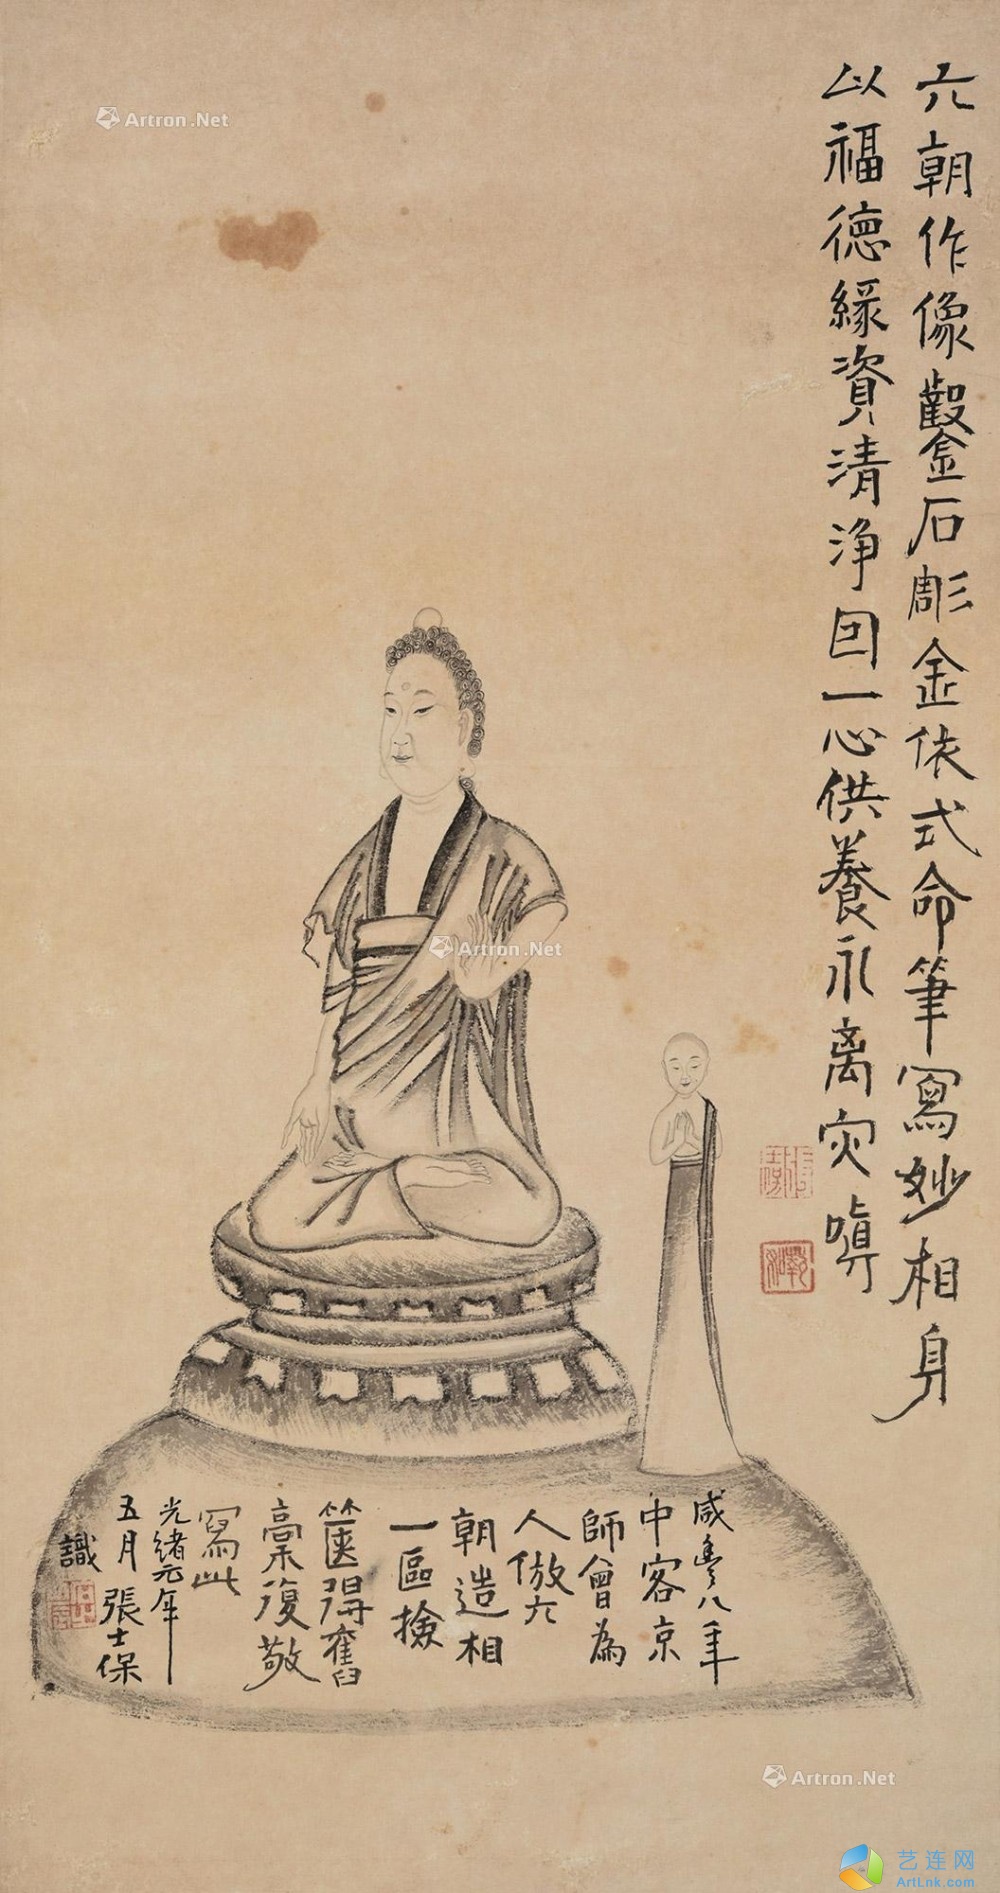 六朝作像鑿石彫金依式命筆寫妙相身
以福德緣資清淨因一心供養永離灾嗔
咸豐八年
中客京
師曾為
人倣六
朝造相
一區撿
篋得舊
稾復敬
寫此
光緒元年
五月張士保
識
Artron.Net
Artron.Net
Artron.Net
艺连网
ArtLnk.com